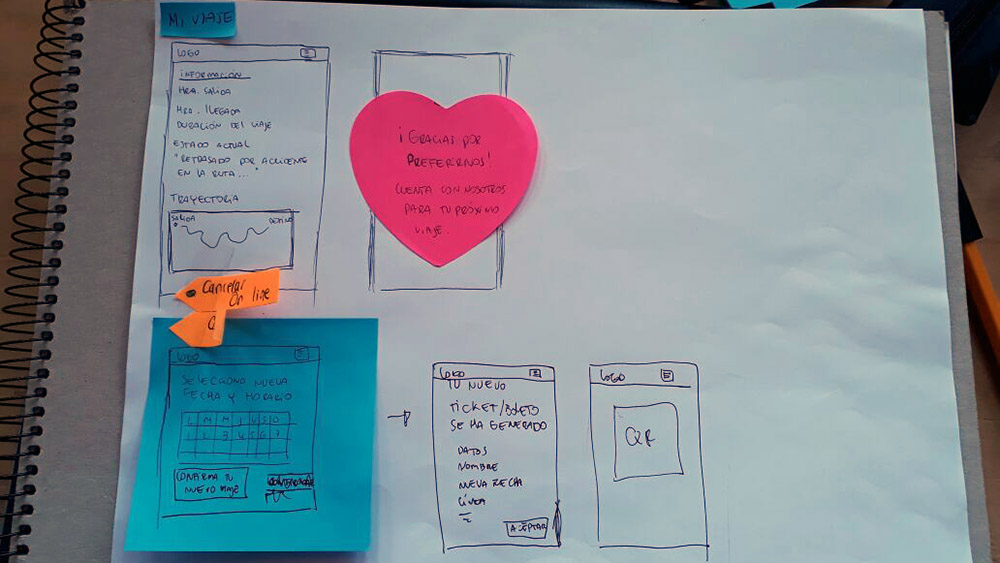 MI VIAJE
LOGO
INFORMACION
HRA. SALIDA
HRA. LLEGADA
DURACIÓN DEL VIAJE
ESTADO ACTUAL
"RETRASADO POR ACCIDENTE
EN LA RUTA..."
TRAYECTORIA
SALIDA
DESTINO
¡GRACIAS POR
PREFERIRNOS!
CUENTA CON NOSOTROS
PARA TU PRÓXIMO
VIAJE.
Cancelar
On line
C
LOGO
SELECCIONO NUEVA
FECHA Y HORARIO
L M M J V S D
1 2 3 4 5 6 7
CONFIRMA TU
NUEVO VIAJE
LOGO
TU NUEVO
TICKET/BOLETO
SE HA GENERADO
DATOS
NOMBRE
NUEVA FECHA
LÍNEA
ACEPTAR
LOGO
QR